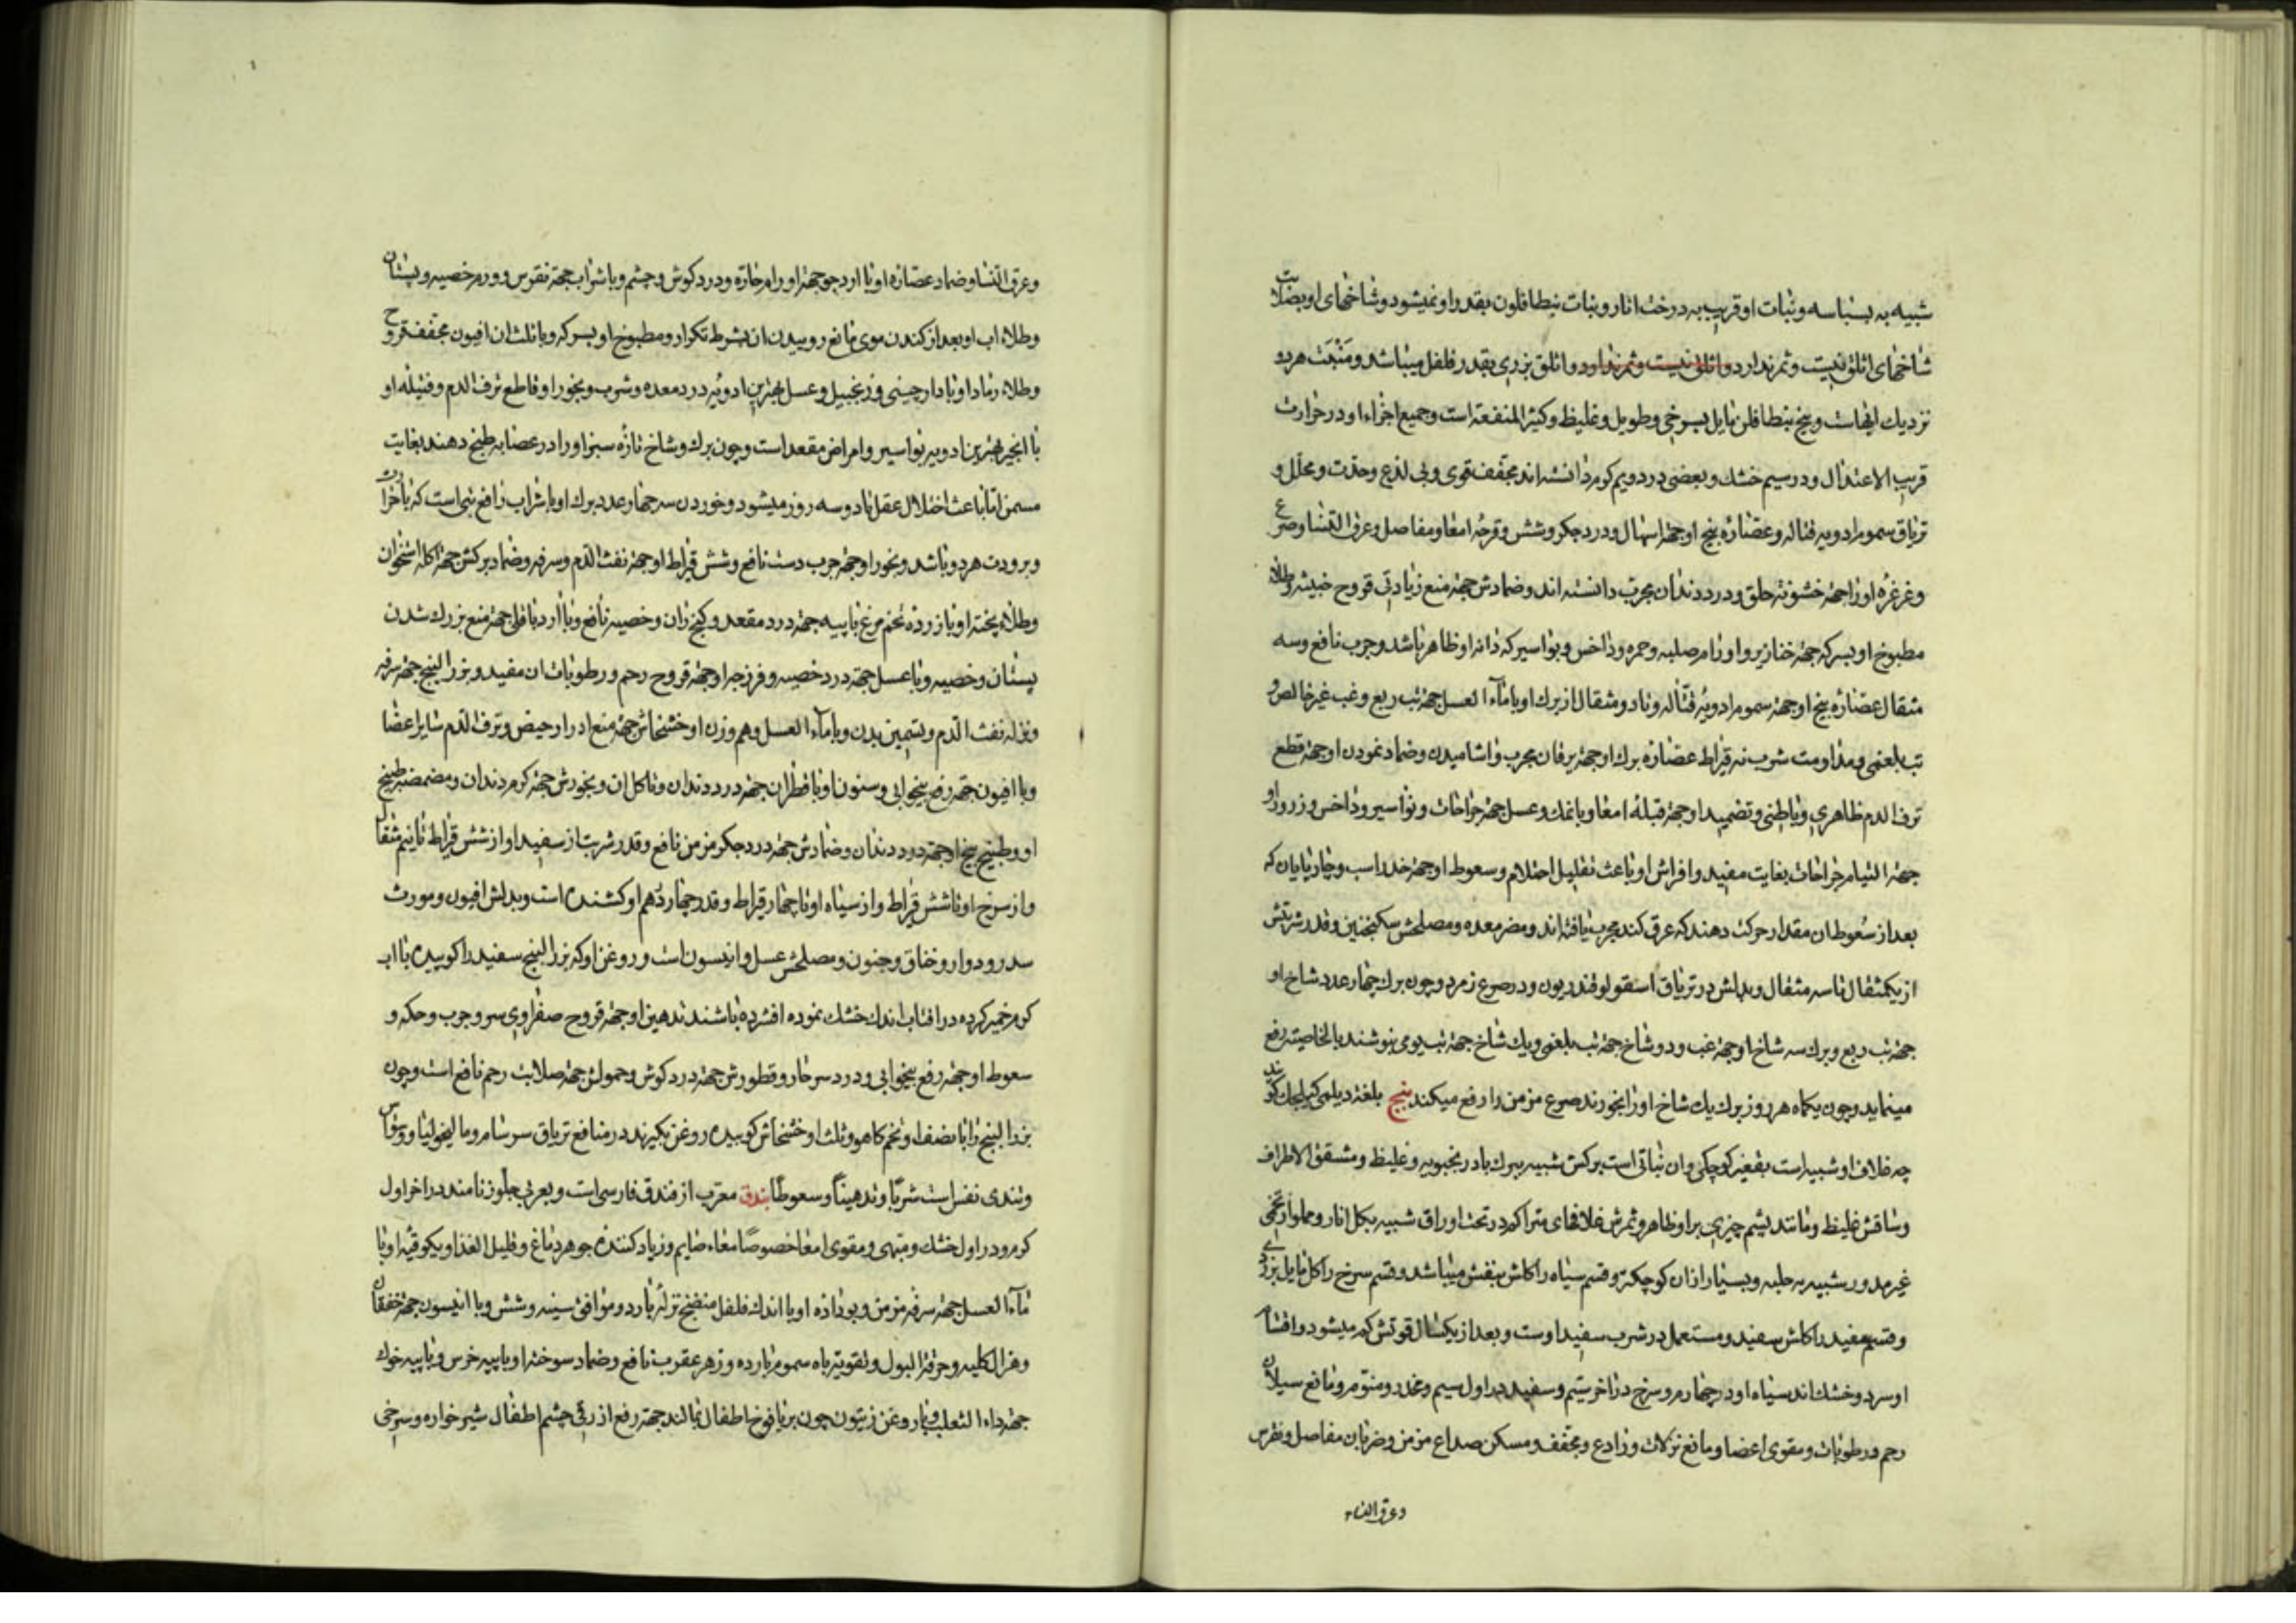 شبیه به بسباسه و نبات او قریب به درخت انار و نبات بنطافلون بقدر او نمیشود و شاخهای او بصلابت
شاخهای اثلق نیست و ثمر ندارد و اثلق نیست و ثمر ندارد و اثلق بزری بقدر فلفل میباشد و منبت هر دو
نزدیك ابهاست و بیخ بنطافلن مایل بسرخی و طویل و غلیظ و کثیر المنفعة است و جمیع اجزاء او در حرارت
قریب الاعتدال و در سیم خشك و بعضی در دویم کرم دانسته اند مجفف قوی و بی لذع و حدت و محلل و
تریاق سموم ادویه قتاله و عصارۀ بیخ او جهة اسهال و درد جکر و شش و قرحۀ امعا و مفاصل و عرق النسا و صرع
و غرغرۀ او را جهة خشونة حلق و درد دندان مجرب دانسته اند و ضمادش جهة منع زیادتی قروح خبیثه و طلاء
مطبوخ او بسرکه جهة خنازیر و اورام صلبه و حمره و داخس و بواسیر که دانه او ظاهر باشد و جرب نافع و سه
مثقال عصارۀ بیخ او جهة سموم ادویۀ قتاله و تا دو مثقال از برك او با ماء العسل جهة تب ربع و غب غیر خالص و
تب بلغمی و مداومت شرب نه قیراط عصارۀ برك او جهة یرقان مجرب و اشامیدن و ضماد نمودن او جهة قطع
نزف الدم ظاهری و باطنی و تضمید او جهة قیلۀ امعا و با نمك و عسل جهة جراحات و نواسیر و داخس و زرور او
جهة التیام جراحات بغایت مفید و افراش او باعث تقلیل احتلام و سعوط او جهة خدر اسب و چارپایان که
بعد از سعوط ان مقدار حرکت دهند که عرق کند مجرب یافته اند و مضر معده و مصلحش سکنجبین و قدر شربتش
از یکمثقال تا سه مثقال و بدلش در تریاق اسقولوقندریون و در صرع زمرد و چون برك چهار عدد شاخ او
جهة تب ربع و برك سه شاخ او جهة غب و دو شاخ جهة تب بلغمی و یك شاخ جهة تب یومی بنوشند بالخاصیته رفع
مینماید و چون یکماه هر روز برك یك شاخ او را بخورند صرع مزمن را رفع میکند بنج بلغة دیلمی کیرلجك کویند
چه غلاف او شبیه است بقفیز کوچکی و ان نباتی است برکش شبیه ببرك بادرنجبویه و غلیظ و مشقق الاطراف
و ساقش غلیظ و مانند پشم چیزی بر او ظاهر و ثمرش غلافهای متراکم در تحت اوراق شبیه بکل انار و مملو از تخمی
غیر مدور شبیه به حلبه و بسیار از ان کوچکتر و قسم سیاه را کلش بنفش میباشد و قسم سرخ را کل مایل بزردی
و قسم سفید را کلش سفید و مستعمل در شرب سفید اوست و بعد از یکسال قوتش کم میشود و اقسام
او سرد و خشك اند سیاه او در چهارم و سرخ در اخر سیم و سفید در اول سیم و مخدر و منوم و مانع سیلان
رحم و رطوبات و مقوی اعضا و مانع نزلات و رادع و مجفف و مسکن صداع مزمن و ضربان مفاصل و نقرس
و عرق النساء
و عرق النسا و ضماد عصارۀ او با ارد جو جهة اورام حارّه و درد کوش و چشم و با شراب جهة نقرس و ورم خصیه و پستان
و طلاء اب او بعد از کندن موی مانع روییدن ان بشرط تکرار و مطبوخ او بسرکه و با ثلث ان افیون مجفف قروح
و طلاء رماد او با دارچینی و زنجبیل و عسل بهترین ادویۀ درد معده و شرب و بخور او قاطع نزف الدم و فتیله او
با انجیر بهترین ادویه بواسیر و امراض مقعد است و چون برك و شاخ تازه سبز او را در عصابه طبخ دهند بغایت
مسمن اما باعث اختلال عقل تا دو سه روز میشود و خوردن سه چهار عدد برك او با شراب رافع تبی است که با حرارت
و برودت هر دو باشد و بخور او جهة جرب دست نافع و شش قیراط او جهة نفث الدم و سرفه و ضماد برکش جهة اکله استخوان
و طلاء پخته او با زرده تخم مرغ با پیه جهة درد مقعد و کنج ران و خصیه نافع و با ارد باقلی جهة منع بزرك شدن
پستان و خصیه و با عسل جهة درد خصیه و فرزجه او جهة قروح رحم و رطوبات ان مفید و بزر البنج جهة سرفه
و نزله نفث الدم و تسمین بدن و با ماء العسل و هم وزن او خشخاش جهة منع ادرار حیض و نزف الدم سایر اعضا
و با افیون جهة رفع بیخوابی و سنون او با قطران جهة درد دندان و تاکل ان و بخورش جهة کرم دندان و مضمضه طبیخ
او و طبیخ بیخ او جهة درد دندان و ضمادش جهة درد جکر مزمن نافع و قدر شربت از سفید او از شش قیراط تا نیم مثقال
و از سرخ او تا شش قیراط و از سیاه او تا چهار قیراط و قدر چهار درهم او کشنده است و بدلش افیون و مورث
سدر و دوار و خناق و جنون و مصلحش عسل و انیسون است و روغن او که بزر البنج سفید را کوبیده با اب
کرم خمیر کرده در افتاب اندك خشك نموده افشرده باشند تدهین او جهة قروح صفراوی سر و جرب و حکه و
سعوط او جهة رفع بیخوابی و درد سر حار و قطورش جهة درد کوش و حمولش جهة صلابت رحم نافع است و چون
بزر البنج را با نصف او تخم کاهو و ثلث او خشخاش کوبیده روغن بکیرند در منافع تریاق سرسام و مالیخولیا و وسواس
و تندی نفس است شرباً و تدهیناً و سعوطاً بندق معرب از فندق فارسی است و بعربی جلوز نامند در اخر اول
کرم و در اول خشك و مبهی و مقوی امعا خصوصاً معاء صایم و زیاد کننده جوهر دماغ و قلیل الغذا و یکوقیۀ او با
ماء العسل جهة سرفه مزمن و بوداده او با اندك فلفل منضج نزلۀ بارد و موافق سینه و شش و با انیسون جهة خفقان
و هزال کلیه و حرقة البول و تقویة باه سموم بارده و زهر عقرب نافع و ضماد سوخته او با پیه خرس و با پیه خوك
جهة داء الثعلب و با روغن زیتون چون بر یافوخ اطفال بمالند جهة رفع ازرقی چشم اطفال شیر خواره و سرخی